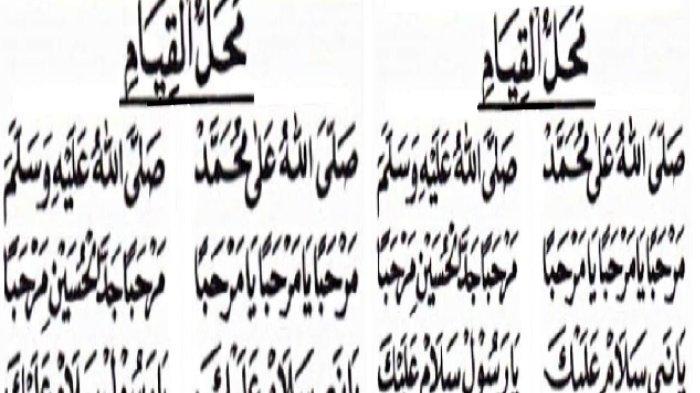 مَحَلُّ الْقِيَامِ
صَلَّى اللهُ عَلَى مُحَمَّدْ صَلَّى اللهُ عَلَيْهِ وَسَلَّمْ
مَرْحَبًا يَا مَرْحَبًا يَا مَرْحَبًا مَرْحَبًا جَدَّ الْحُسَيْنِ مَرْحَبًا
يَا نَبِي سَلَامْ عَلَيْكَ يَا رَسُوْلْ سَلَامْ عَلَيْكَ
مَحَلُّ الْقِيَامِ
صَلَّى اللهُ عَلَى مُحَمَّدْ صَلَّى اللهُ عَلَيْهِ وَسَلَّمْ
مَرْحَبًا يَا مَرْحَبًا يَا مَرْحَبًا مَرْحَبًا جَدَّ الْحُسَيْنِ مَرْحَبًا
يَا نَبِي سَلَامْ عَلَيْكَ يَا رَسُوْلْ سَلَامْ عَلَيْكَ